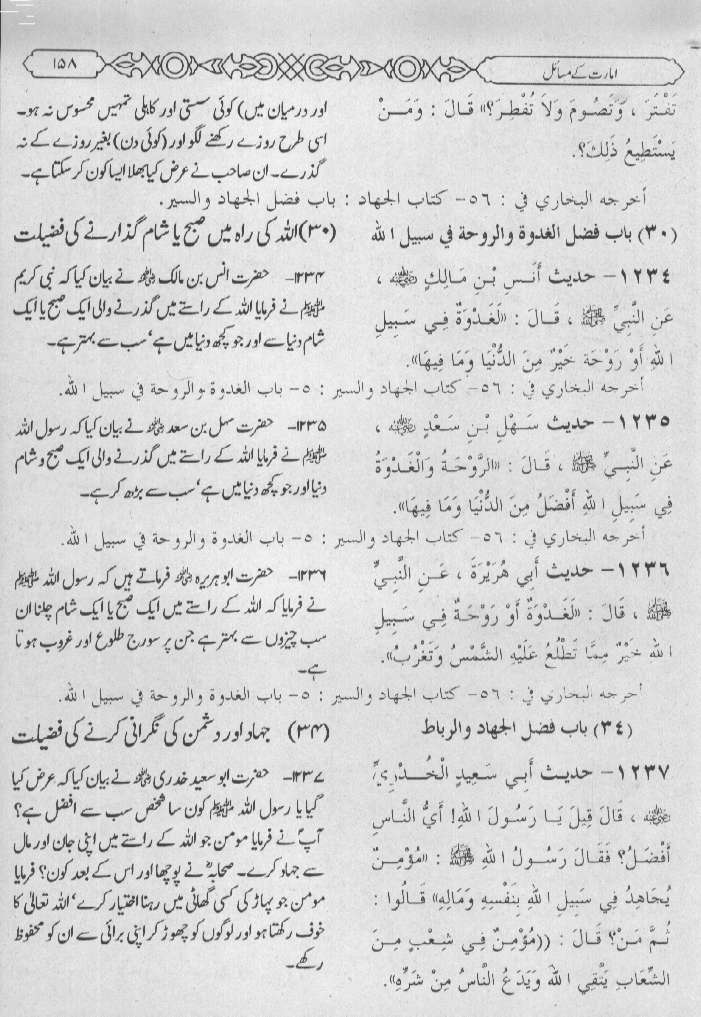 امارت کے مسائل
۱۵۸
تَفْتُرَ ، وَتَصُومَ وَلاَ تُفْطِرَ؟» قَالَ : وَمَنْ
يَسْتَطِيعُ ذَلِكَ؟.
اور درمیان میں) کوئی سستی اور کاہلی تمہیں محسوس نہ ہو۔
اسی طرح روزے رکھنے لگو اور (کوئی دن) بغیر روزے کے نہ
گذرے۔ ان صاحب نے عرض کیا بھلا ایسا کون کر سکتا ہے۔
أخرجه البخاري في : ٥٦- كتاب الجهاد : باب فضل الجهاد والسير.
(٣٠) باب فضل الغدوة والروحة في سبيل الله
(۳۰) اللہ کی راہ میں صبح یا شام گذارنے کی فضیلت
١٢٣٤- حديث أَنَسِ بْنِ مَالِكٍ ﷺ ،
عَنِ النَّبِيِّ ﷺ ، قَالَ : «لَغَدْوَةٌ فِي سَبِيلِ
اللهِ أَوْ رَوْحَة خَيْرٌ مِنَ الدُّنْيَا وَمَا فِيهَا».
۱۲۳۴- حضرت انس بن مالک رضی اللہ عنہ نے بیان کیا کہ نبی کریم
ﷺ نے فرمایا اللہ کے راستے میں گذرنے والی ایک صبح یا ایک
شام دنیا سے اور جو کچھ دنیا میں ہے‘ سب سے بہتر ہے۔
أخرجه البخاري في : ٥٦- كتاب الجهاد والسير : ٥- باب الغدوة والروحة في سبيل الله.
١٢٣٥- حديث سَهْلِ بْنِ سَعْدٍ ﷺ ،
عَنِ النَّبِيِّ ﷺ ، قَالَ : «الرَّوْحَةُ وَالْغَدْوَةُ
فِي سَبِيلِ اللهِ أَفْضَلُ مِنَ الدُّنْيَا وَمَا فِيهَا».
۱۲۳۵- حضرت سہل بن سعد رضی اللہ عنہ نے بیان کیا کہ رسول اللہ
ﷺ نے فرمایا اللہ کے راستے میں گذرنے والی ایک صبح و شام
دنیا اور جو کچھ دنیا میں ہے‘ سب سے بڑھ کر ہے۔
أخرجه البخاري في : ٥٦- كتاب الجهاد والسير : ٥- باب الغدوة والروحة في سبيل الله.
١٢٣٦- حديث أَبِي هُرَيْرَةَ ، عَنِ النَّبِيِّ
ﷺ ، قَالَ : «لَغَدْوَةٌ أَوْ رَوْحَةٌ فِي سَبِيلِ
الله خَيْرٌ مِمَّا تَطْلُعُ عَلَيْهِ الشَّمْسُ وَتَغْرُبُ».
۱۲۳۶- حضرت ابو ہریرہ رضی اللہ عنہ فرماتے ہیں کہ رسول اللہ ﷺ
نے فرمایا کہ اللہ کے راستے میں ایک صبح یا ایک شام چلنا ان
سب چیزوں سے بہتر ہے جن پر سورج طلوع اور غروب ہوتا
ہے۔
أخرجه البخاري في : ٥٦- كتاب الجهاد والسير : ٥- باب الغدوة والروحة في سبيل الله.
(٣٤) باب فضل الجهاد والرباط
(۳۴) جہاد اور دشمن کی نگرانی کرنے کی فضیلت
١٢٣٧- حديث أَبِي سَعِيدٍ الْخُدْرِيِّ
رضی اللہ عنہ ، قَالَ قِيلَ يَا رَسُولَ اللهِ! أَيُّ النَّاسِ
أَفْضَلُ؟ فَقَالَ رَسُولُ اللهِ ﷺ : «مُؤْمِنٌ
يُجَاهِدُ فِي سَبِيلِ اللهِ بِنَفْسِهِ وَمَالِهِ» قَالُوا :
ثُمَّ مَنْ؟ قَالَ : ((مُؤْمِنٌ فِي شِعْبٍ مِنَ
الشِّعَابِ يَتَّقِي اللهَ وَيَدَعُ النَّاسُ مِنْ شَرِّهِ».
۱۲۳۷- حضرت ابو سعید خدری رضی اللہ عنہ نے بیان کیا کہ عرض کیا
گیا یا رسول اللہ ﷺ کون سا شخص سب سے افضل ہے؟
آپؐ نے فرمایا مومن جو اللہ کے راستے میں اپنی جان اور مال
سے جہاد کرے۔ صحابہؓ نے پوچھا اور اس کے بعد کون؟ فرمایا
مومن جو پہاڑ کی کسی گھاٹی میں رہنا اختیار کرے‘ اللہ تعالیٰ کا
خوف رکھتا ہو اور لوگوں کو چھوڑ کر اپنی برائی سے ان کو محفوظ
رکھے۔